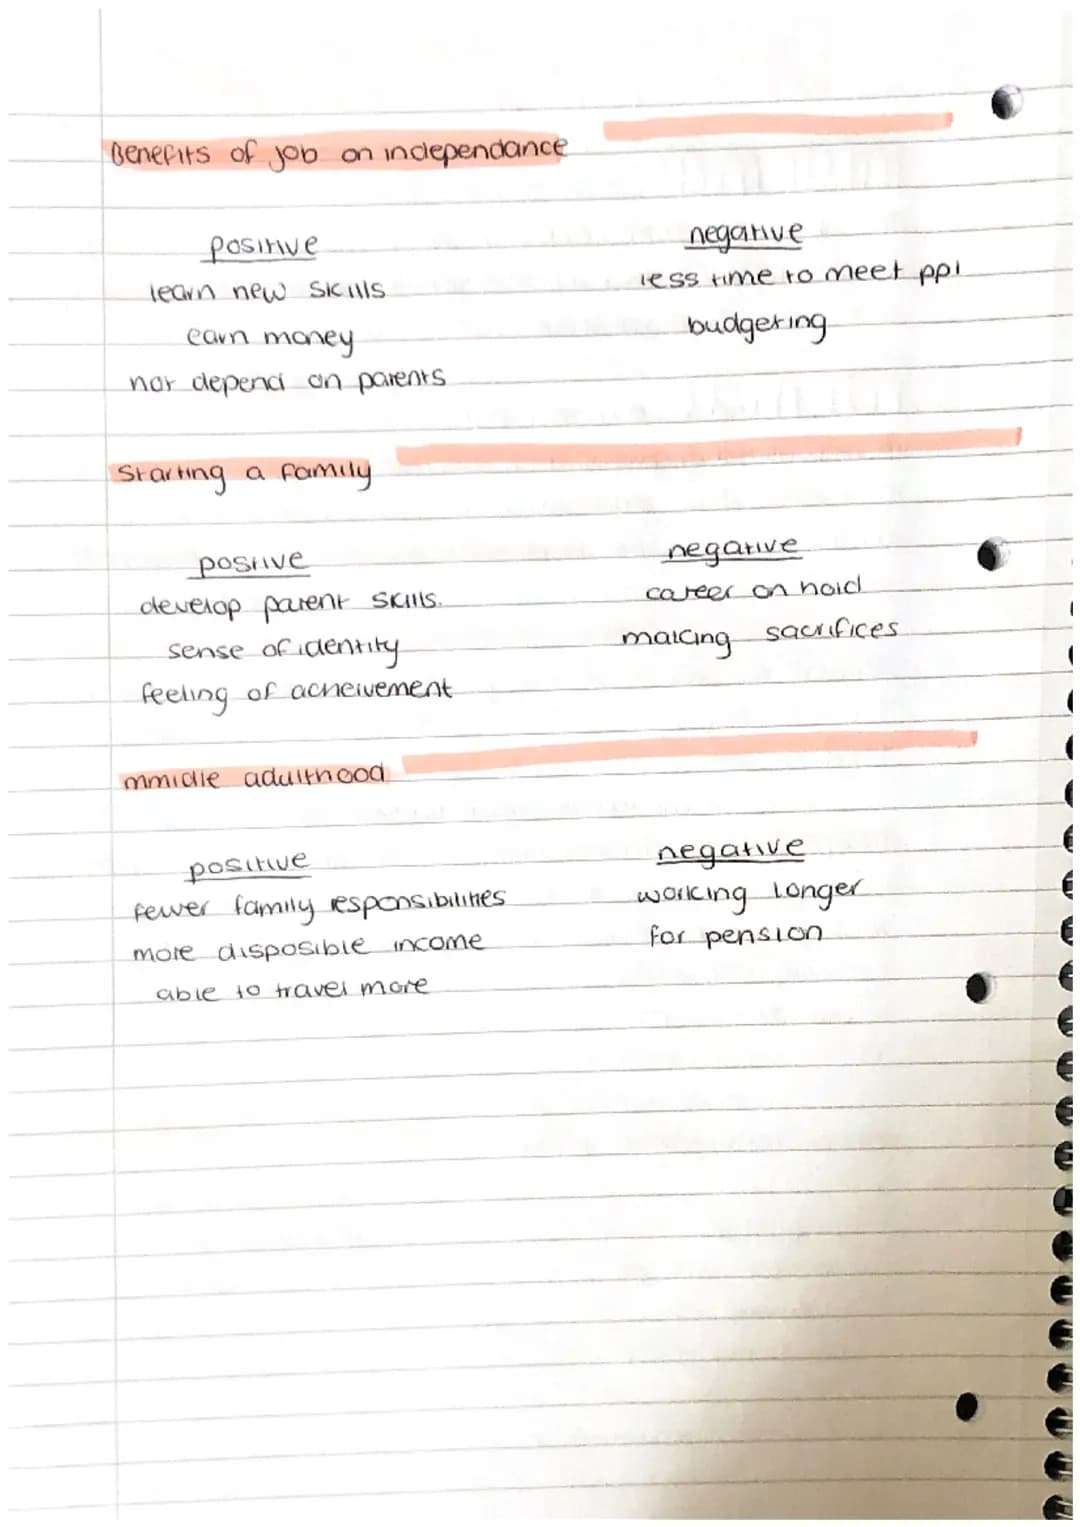 Benefits of job on independance
positive
learn new skills
earn money
not depend on parents
negative
less time to meet ppl
budgeting
Starting a family
postive
develop parent skills.
sense of identity
feeling of acheivement
negative
career on hold
making sacrifices
mmidle adulthood
positive
fewer family responsibilities
more disposible income
able to travel more
negative
working longer
for pension